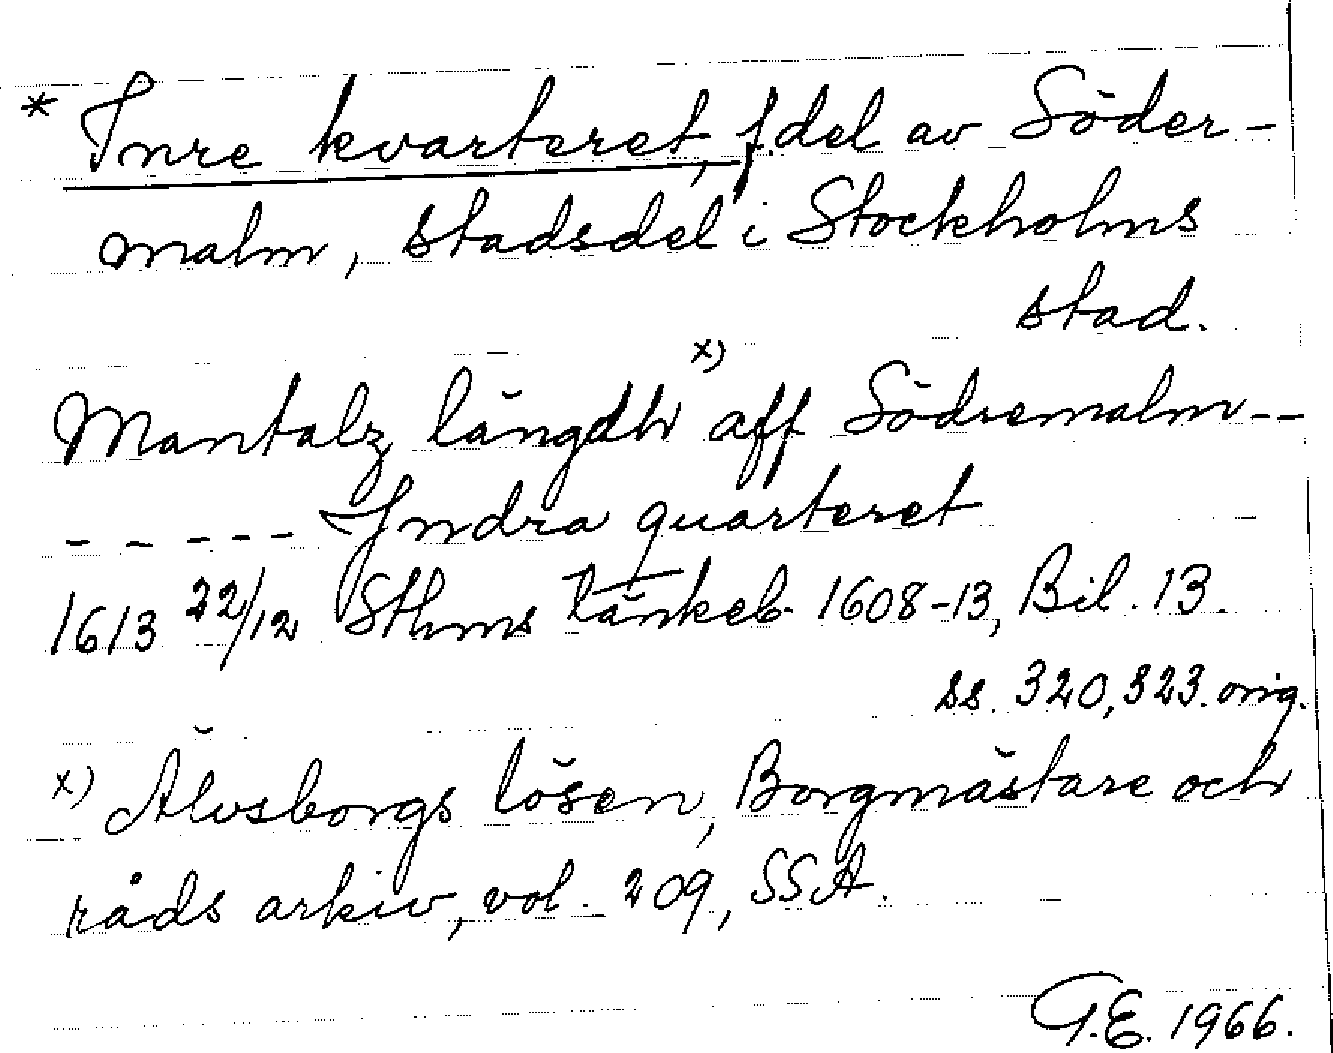 * Inre kvarteret, f. del av Söder-
malm, stadsdel i Stockholms
stad.
Mantalz längdh x) aff Södremalm --
- - - - - Indra quarteret
1613 22/12 Sthms tänkeb. 1608-13, Bil. 13.
ss. 320, 323. orig.
x) Älvsborgs lösen, Borgmästare och
råds arkiv, vol. 209, SSA.
G.E. 1966.